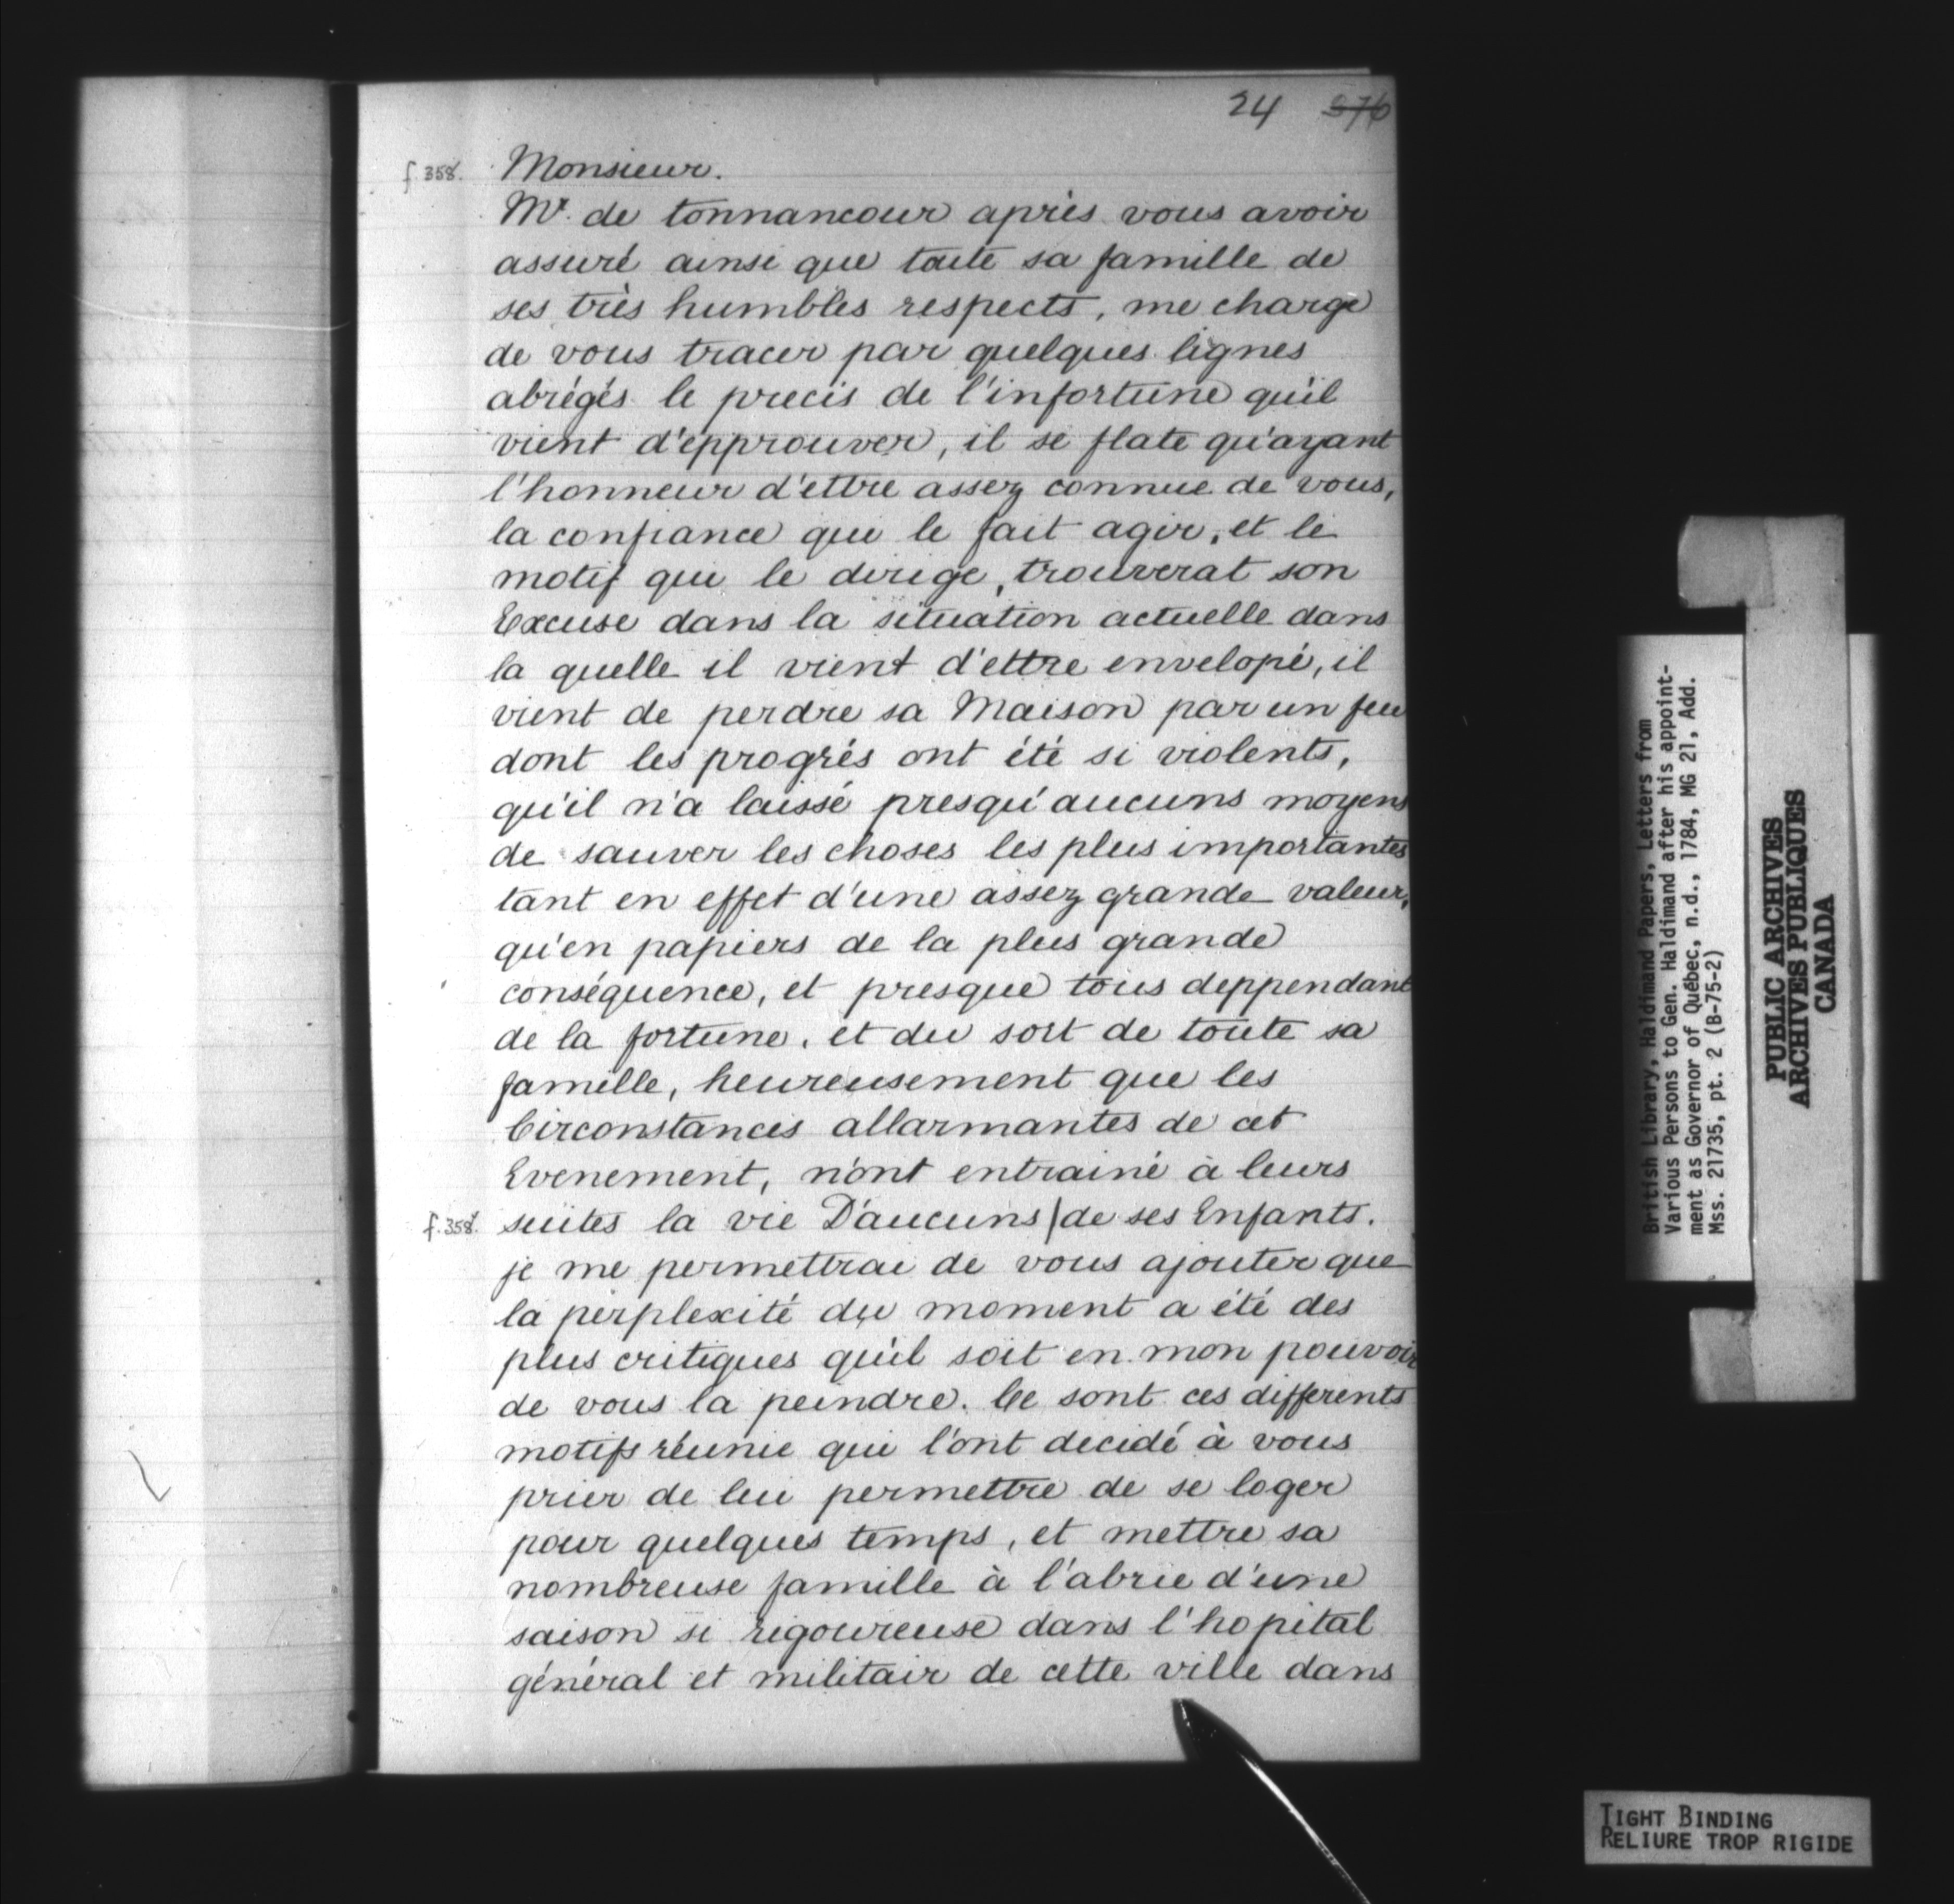 24 376
f. 358. Monsieur.
Mr. de tonnancour après vous avoir
assuré ainsi que toute sa famille de
ses très humbles respects, me charge
de vous tracer par quelques lignes
abrégés le precis de l'infortune qu'il
vient d'epprouver, il se flate qu'ayant
l'honneur d'ettre assez connue de vous,
la confiance qui le fait agir, et le
motif qui le dirige, trouverat son
Excuse dans la situation actuelle dans
la quelle il vient d'ettre envelopé, il
vient de perdre sa Maison par un feu
dont les progrés ont été si violents,
qu'il n'a laissé presqu'aucuns moyens
de sauver les choses les plus importantes
tant en effet d'une assez grande valeur,
qu'en papiers de la plus grande
conséquence, et presque tous deppendant
de la fortune, et du sort de toute sa
famille, heureusement que les
Circonstances allarmantes de cet
Evenement, n'ont entrainé à leurs
f. 358v. suites la vie D'aucuns/de ses Enfants.
je me permettrai de vous ajouter que
la perplexité du moment a été des
plus critiques qu'il soit en mon pouvoir
de vous la peindre. Ce sont ces differents
motifs réunie qui l'ont decidé à vous
prier de lui permettre de se loger
pour quelques temps, et mettre sa
nombreuse famille à l'abrie d'une
saison si rigoureuse dans l'hopital
général et militair de cette ville dans
British Library, Haldimand Papers, Letters from
Various Persons to Gen. Haldimand after his appoint-
ment as Governor of Québec, n.d., 1784, MG 21, Add.
Mss. 21735, pt. 2 (B-75-2)
PUBLIC ARCHIVES
ARCHIVES PUBLIQUES
CANADA
TIGHT BINDING
RELIURE TROP RIGIDE